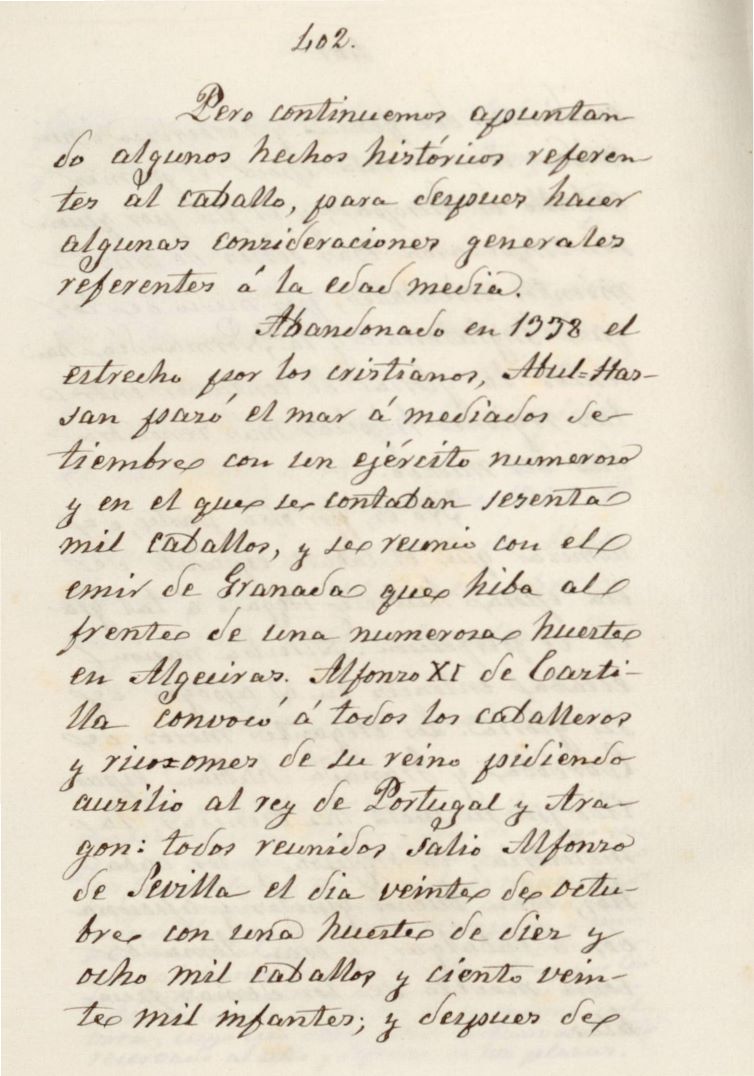 402.
Pero continuemos apuntan
do algunos hechos históricos referen
tes al caballo, para despues hacer
algunas consideraciones generales
referentes á la edad media.
Abandonado en 1338 el
estrecho por los cristianos, Abul=Has-
san pasó el mar á mediados de
tiembre con un ejército numeroso
y en el que se contaban sesenta
mil caballos, y se reunio con el
emir de Granada que hiba al
frente de una numerosa hueste
en Algeciras. Alfonso XI de Casti-
lla convocó á todos los caballeros
y ricos=omes de su reino pidiendo
auxilio al rey de Portugal y Ara-
gon: todos reunidos salio Alfonso
de Sevilla el dia veinte de octu-
bre con una hueste de diez y
ocho mil caballos y ciento vein-
te mil infantes; y despues de